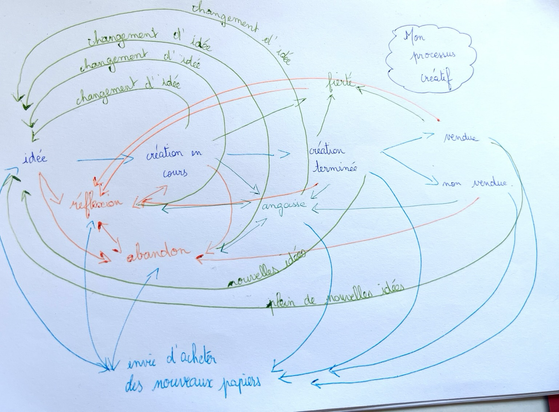 changement d'idée
changement d'idée
changement d'idée
changement d'idée
Mon
processus
créatif
fierté
idée
création en
cours
création
terminée
vendue
non vendue
réflexion
angoisse
abandon
nouvelles idées
plein de nouvelles idées
envie d'acheter
des nouveaux papiers